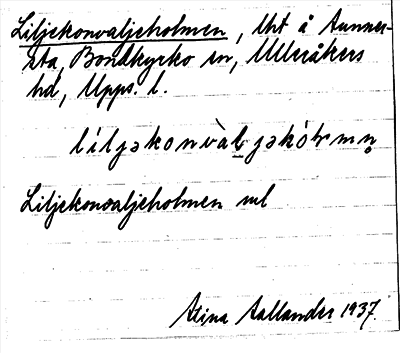 Liljekonvaljeholmen, lht å Sunner-
sta, Bondkyrko sn, Ulleråkers
hd, Upps. l.
liljəkonvàl jəkòɫmn̥
Liljekonvaljeholmen ml
Stina Aallander 1937.